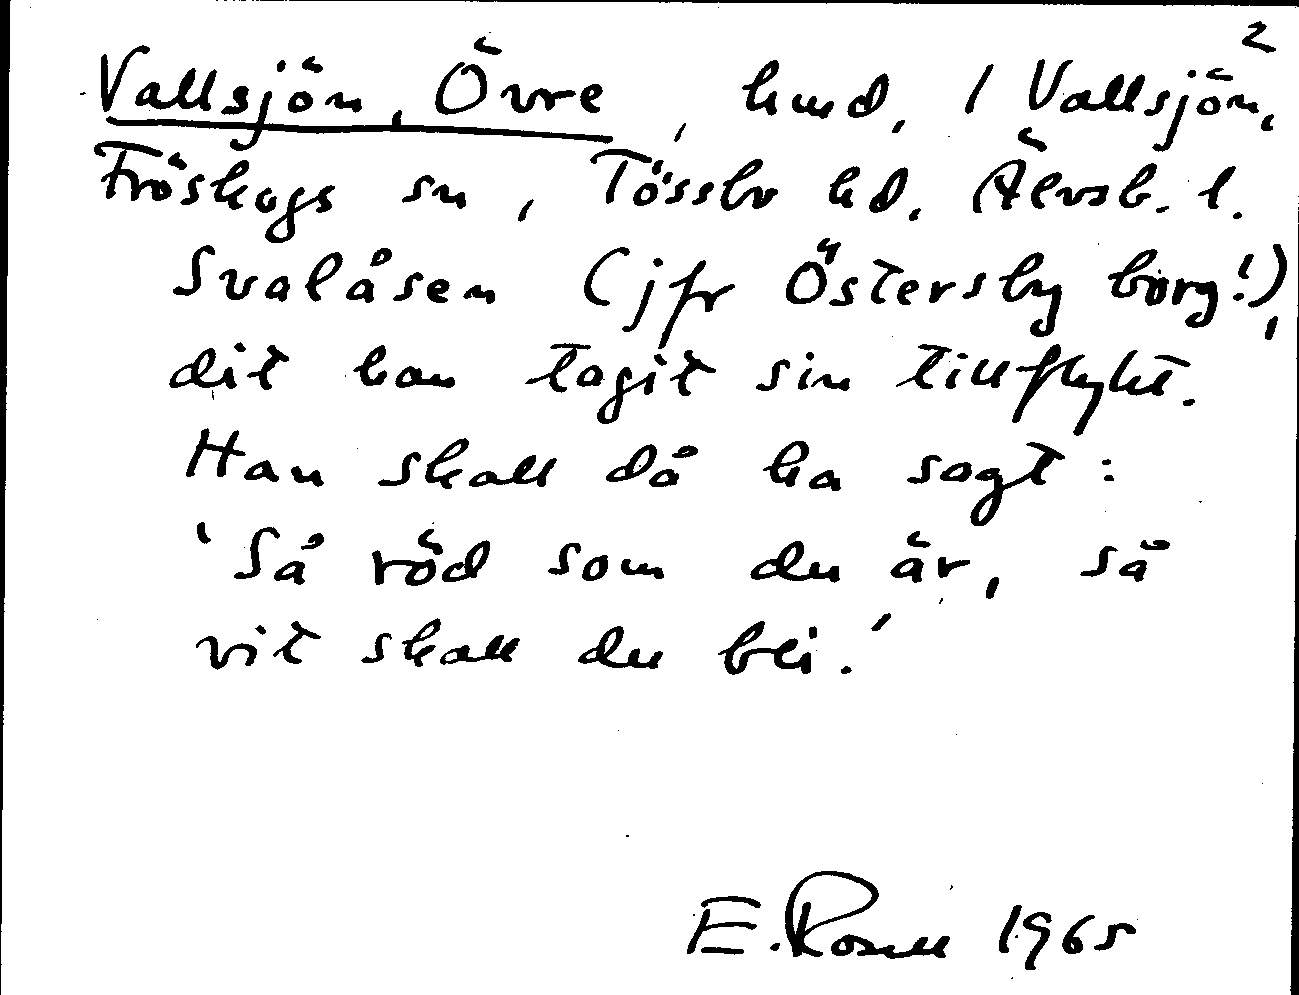 2
Vallsjön, Övre, hmd, 1 Vallsjön,
Fröskogs sn, Tössbo hd. Älvsb. l.
Svalåsen (jfr Östersby borg!),
dit han tagit sin tillflykt.
Han skall då ha sagt:
'Så röd som du är, så
vit skall du bli.'
E. Rosell 1965